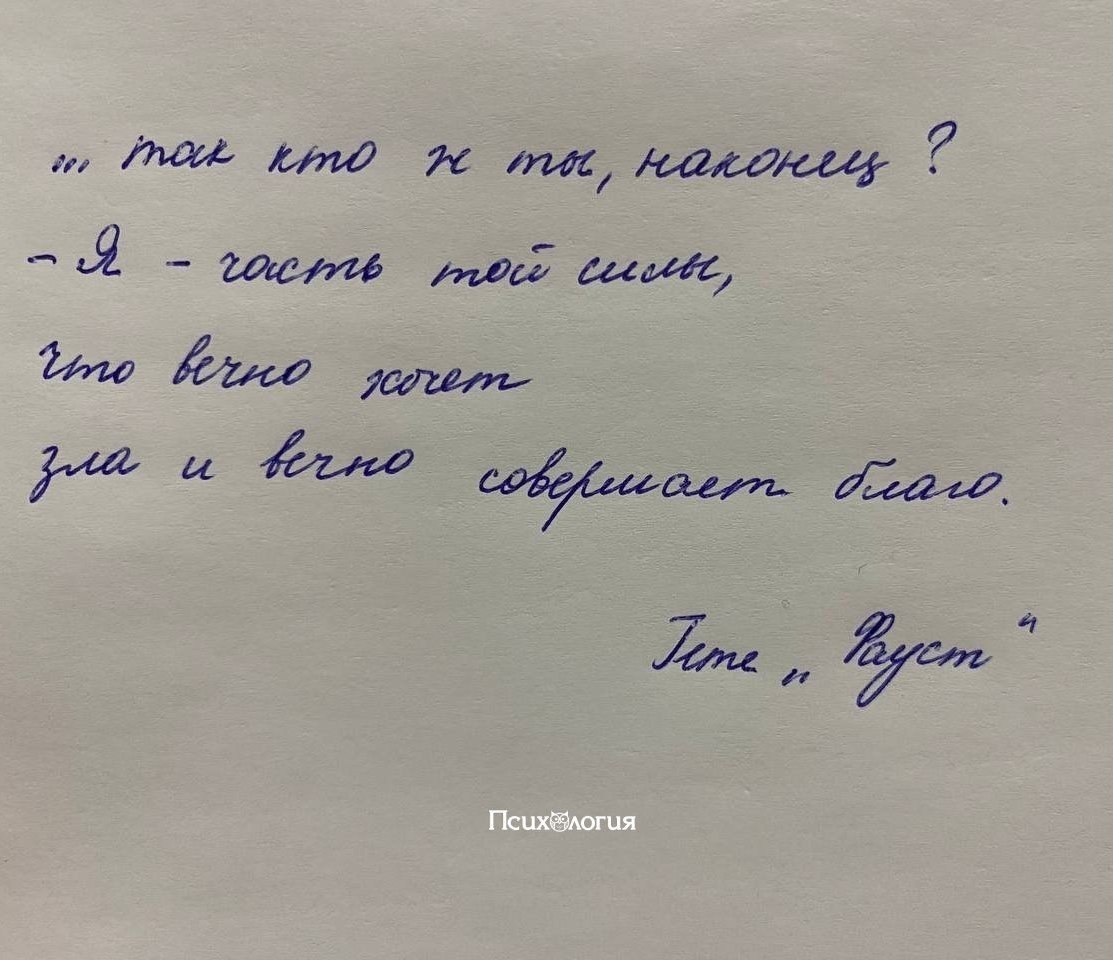 ... так кто ж ты, наконец?
- Я - часть той силы,
что вечно хочет
зла и вечно совершает благо.
Гете „Фауст“
Психология